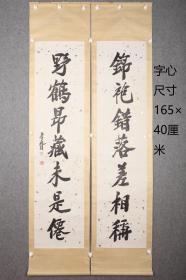 錦袍錯落差相稱
野鶴昂藏未是僊
字心
尺寸
165×
40厘
米